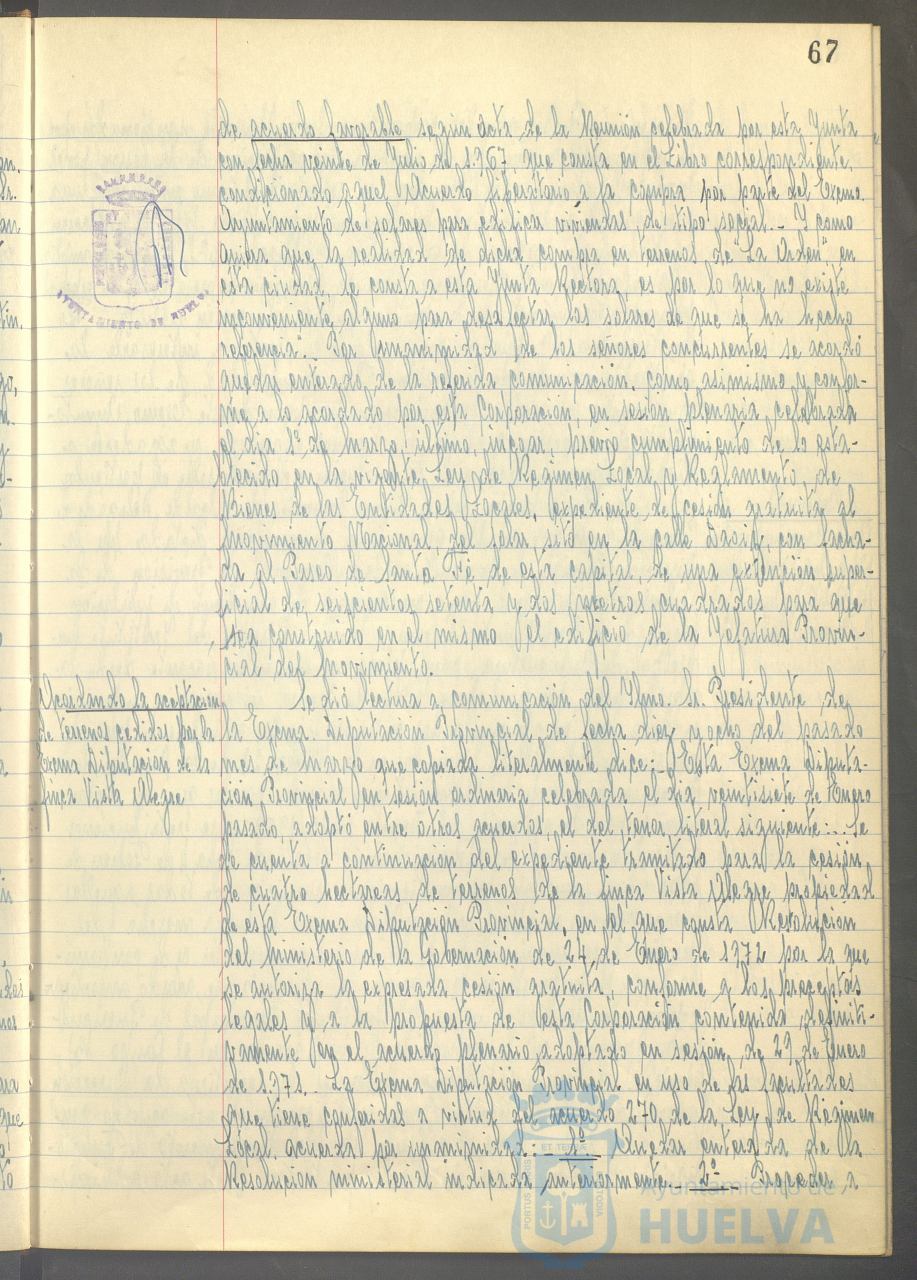 67
de acuerdo favorable según acta de la Reunión celebrada por esta Junta
con fecha veinte de Julio de 1.967 que consta en el Libro correspondiente,
condicionado aquel Acuerdo liberatorio a la compra por parte del Excmo.
Ayuntamiento de solares para edifica viviendas de tipo social.- Y como
quiera que la realidad de dicha compra en terrenos de "La Orden", en
esta ciudad le consta a esta Junta Rectora, es por lo que no existe
inconveniente alguno para desafectar los solares de que se ha hecho
referencia". Por unanimidad de los señores concurrentes se acordó
quedar enterado de la referida comunicación, como asimismo y confor-
me a lo acordado por esta Corporación, en sesión plenaria celebrada
el día 1º de marzo último, incoar, previo cumplimiento de lo esta-
blecido en la vigente Ley de Régimen Local y Reglamento de
Bienes de las Entidades Locales, expediente de cesión gratuita al
Movimiento Nacional, del solar sito en la calle con facha-
da al Paseo de Santa Fé de esta capital, de una extensión super-
ficial de seiscientos setenta y dos metros cuadrados para que
sea construido en el mismo el edificio de la Jefatura Provin-
cial del Movimiento.
Acordando la aceptación
de terrenos cedidos por la
Excma Diputación de la
finca Vista Alegre
Se dió lectura a comunicación del Ilmo. Sr. Presidente de
la Excma Diputación Provincial de fecha diez y ocho del pasado
mes de marzo que copiada literalmente dice: "Esta Excma Diputa-
ción Provincial en sesión ordinaria celebrada el día veintisiete de Enero
pasado, adoptó entre otros acuerdos, el del tenor literal siguiente:.. Se
da cuenta a continuación del expediente tramitado para la cesión
de cuatro hectáreas de terrenos de la finca Vista Alegre propiedad
de esta Excma Diputación Provincial, en el que consta Resolución
del Ministerio de la Gobernación de 24 de Enero de 1972 por la que
se autoriza la expresada cesión gratuita, conforme a los preceptos
legales y a la propuesta de esta Corporación contenida definiti-
vamente en el acuerdo plenario adoptado en sesión de 29 de Enero
de 1.971. La Excma Diputación Provincial en uso de las facultades
que tiene conferidas a virtud del acuerdo 270 de la Ley de Régimen
Local, acuerda por unanimidad:- 1º Quedar enterada de la
Resolución ministerial indicada anteriormente.- 2º - Proceder a
AYUNTAMIENTO DE HUELVA
PORTUS MARIS ET TERRAE CUSTODIA
Ayuntamiento de
HUELVA